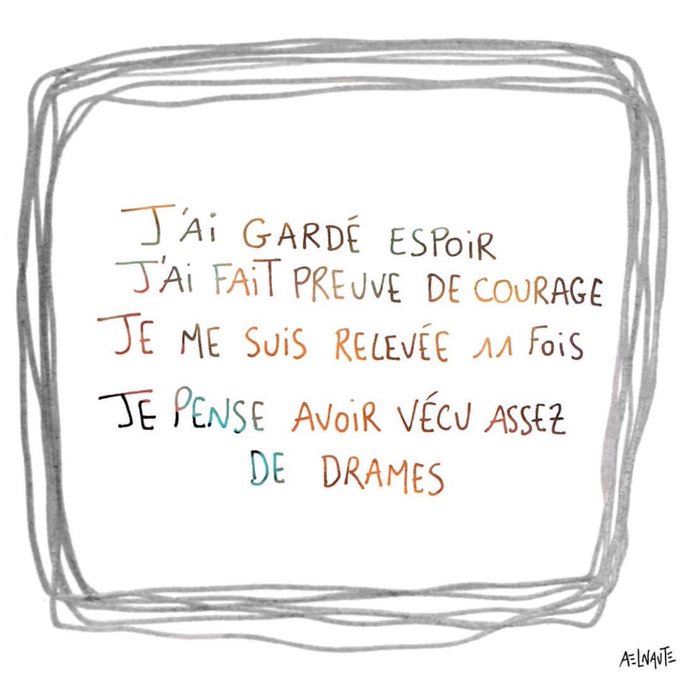 J'Ai GARDÉ ESPOiR
J'Ai FAiT PREUVE DE COURAGE
JE ME SUiS RELEVÉE 11 FOiS
JE PENSE AVOiR VÉCU ASSEZ
DE DRAMES
AELNAUTE